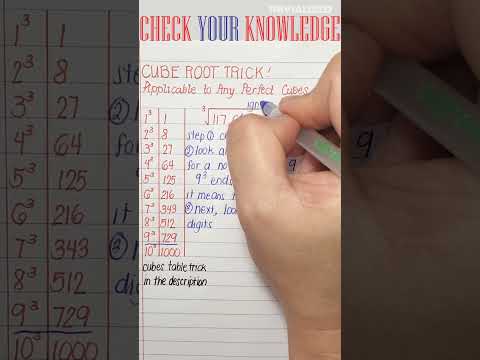 TRIVIALIZED
CHECK YOUR KNOWLEDGE
CUBE ROOT TRICK!
Applicable to Any Perfect Cubes
1³ 1
2³ 8
3³ 27
4³ 64
5³ 125
6³ 216
7³ 343
8³ 512
9³ 729
10³ 1000
ign
³√117
step ①
② look
for a no
9³ ends
it means
③ next,
digits
cubes table trick
in the description
1³ 1
2³ 8
3³ 27
4³ 64
5³ 125
6³ 216
7³ 343
8³ 512
9³ 729
10³ 1000